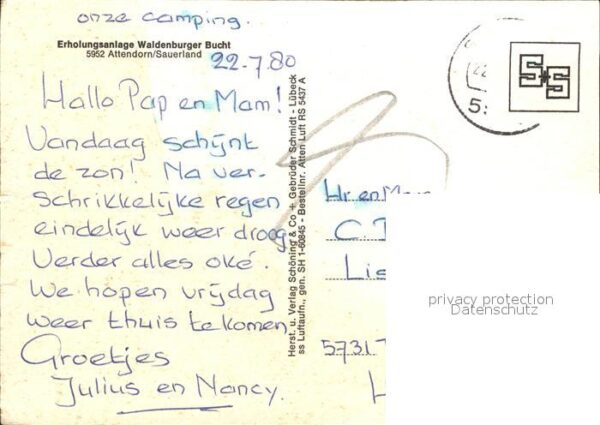 onze camping.
Erholungsanlage Waldenburger Bucht
5952 Attendorn/Sauerland
22.7.80
Hallo Pap en Mam!
Vandaag schijnt
de zon! Na ver-
schrikkelijke regen
eindelijk weer droog
Verder alles oké.
We hopen vrijdag
weer thuis te komen
Groetjes
Julius en Nancy.
Herst. u. Verlag Schöning & Co + Gebrüder Schmidt - Lübeck
ss Luftaufn., gen. SH 1-60845 - Bestellnr. Atten Luft RS 5437 A
S+S
22
5:
Hr. en
C.
5731
H
privacy protection
Datenschutz